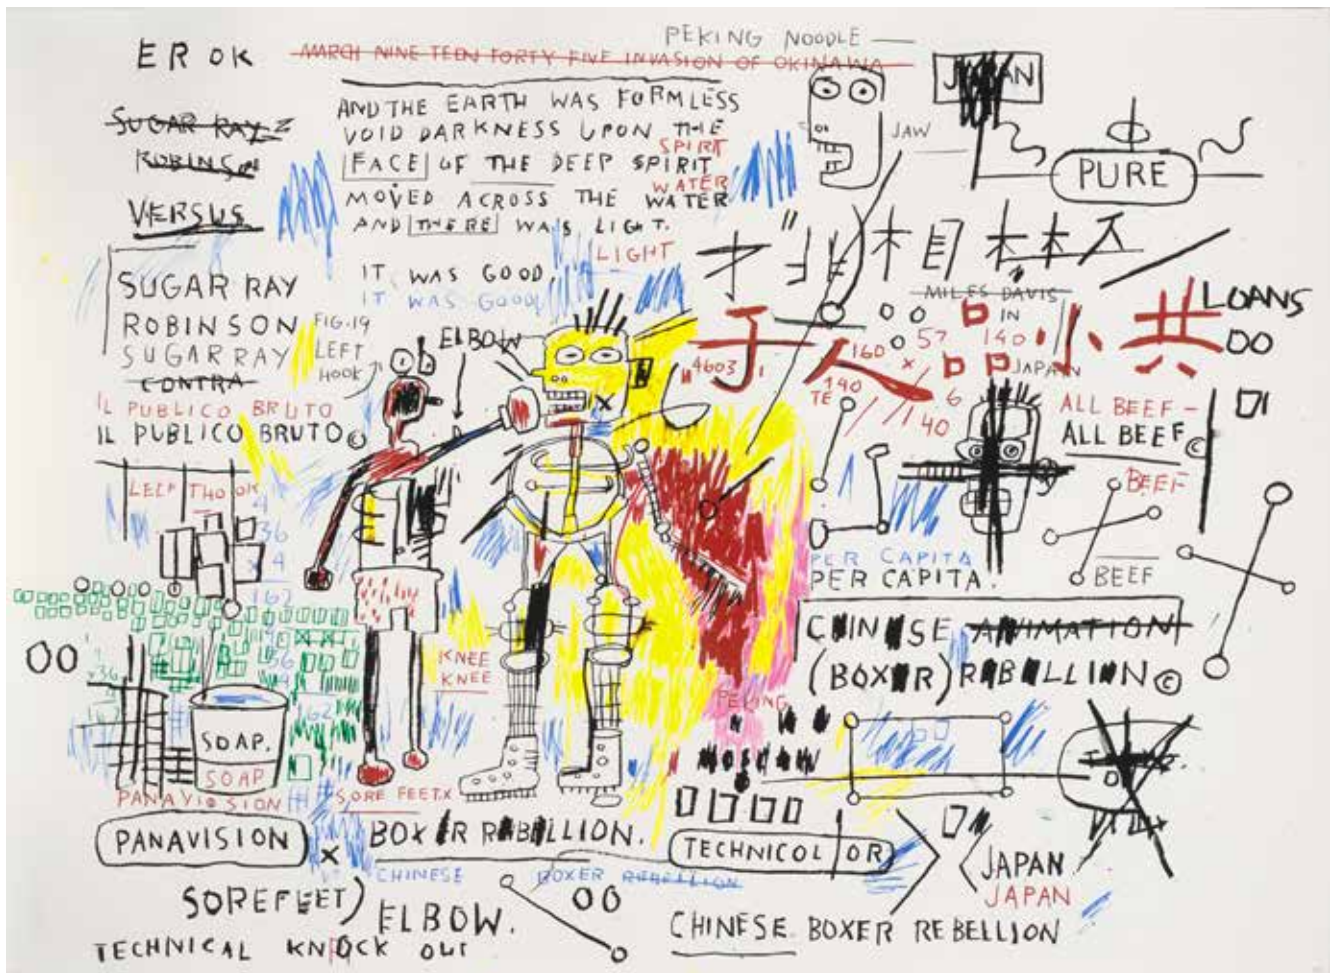 PEKING NOODLE
EROK
MARCH NINE TEEN FORTY FIVE INVASION OF OKINAWA
JAPAN
SUGAR RAY
ROBINSON
VERSUS
AND THE EARTH WAS FORMLESS
VOID DARKNESS UPON THE
SPIRIT
FACE OF THE DEEP SPIRIT
WATER
MOVED ACROSS THE WATER
AND THERE WAS LIGHT.
LIGHT
JAW
PURE
IT WAS GOOD,
IT WAS GOOD
SUGAR RAY
ROBINSON
SUGAR RAY
CONTRA
IL PUBLICO BRUTO
IL PUBLICO BRUTO©
FIG.19
LEFT
HOOK
ELBOW
MILES DAVIS
IN
JAPAN
LOANS
子人品小共
4603
160
57
140
×
190
TE
6
140
ALL BEEF -
ALL BEEF
©
BEEF
BEEF
LEFT THO OK
4
36
x 4
162
36
PER CAPITA
PER CAPITA.
CHINESE ANIMATION
(BOXER) REBELLION ©
KNEE
KNEE
PEKING
MOSCOW
SOAP.
SOAP
PANAVISION
SORE FEET.X
PANAVISION
X
BOXER REBELLION.
TECHNICOLOR
JAPAN
JAPAN
CHINESE BOXER REBELLION
SOREFEET)
ELBOW.
CHINESE BOXER REBELLION
TECHNICAL KNOCK OUT